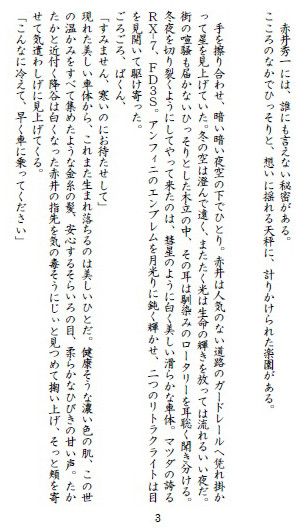 赤井秀一には、誰にも言えない秘密がある。
こころのなかでひっそりと、想いに揺れる天秤に、計りかけられた楽園がある。
手を擦り合わせ、暗い暗い夜空の下でひとり。赤井は人気のない道路のガードレールへ凭れ掛か
って星を見上げていた。冬の空は澄んで遠く、またたく光は生命の輝きを放っては流れるいい夜だ。
街の喧騒も届かないひっそりとした木立の中、その耳は馴染みのロータリーを耳聡く聞き分ける。
冬夜を切り裂くようにしてやって来たのは、彗星のように白く美しい滑らかな車体。マツダの誇る
RX-7、FD3S。アンフィニのエンブレムを月光りに鈍く輝かせ、二つのリトラクライトは目
を見開いて駆け寄った。
ごろごろ、ばくん。
「すみません、寒いのにお待たせして」
現れた美しい車体から、これまた生まれ落ちるのは美しいひとだ。健康そうな濃い色の肌、この世
の温かみをすべて集めたような金糸の髪、安心するそらいろの目、柔らかなひびきの甘い声。たか
たかと近付く降谷は白くなった赤井の指先を気の毒そうにじぃと見つめて掬い上げ、そっと頬を寄
せて気遣わしげに見上げてくる。
「こんなに冷えて、早く車に乗ってください」
3